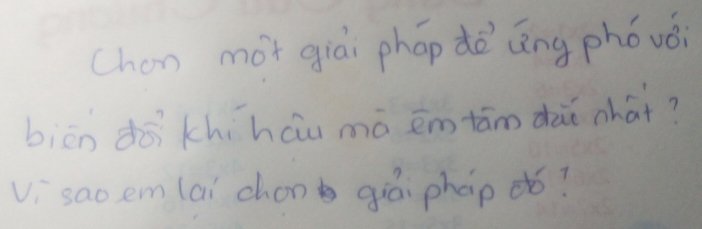 Chọn một giải pháp để ứng phó với
biến đổi khí hậu mà em tâm đắc nhất?
Vì sao em lại chọn giải pháp đó?